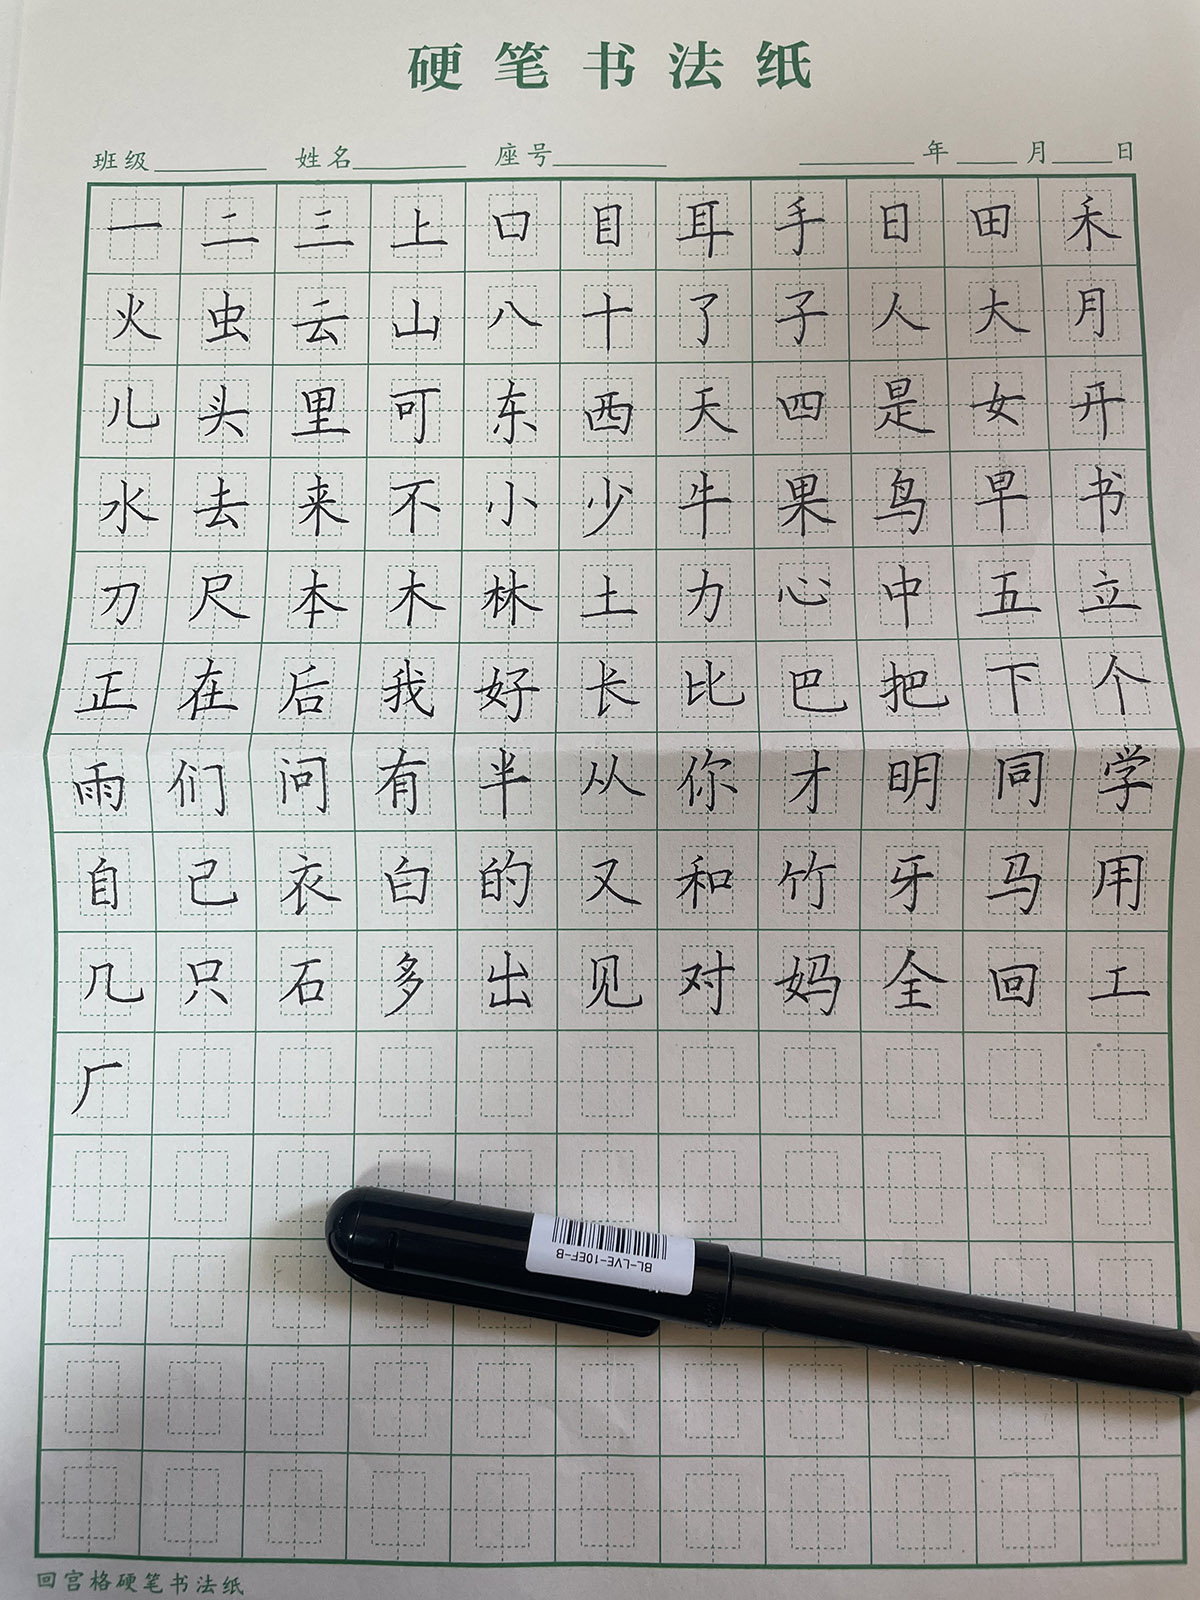 硬笔书法纸
班级 姓名 座号 年 月 日
一二三上口目耳手日田禾
火虫云山八十了子人大月
儿头里可东西天四是女开
水去来不小少牛果鸟早书
刀尺本木林土力心中五立
正在后我好长比巴把下个
雨们问有半从你才明同学
自己衣白的又和竹牙马用
几只石多出见对妈全回工
厂
BL-LVE-10EF-B
回宫格硬笔书法纸